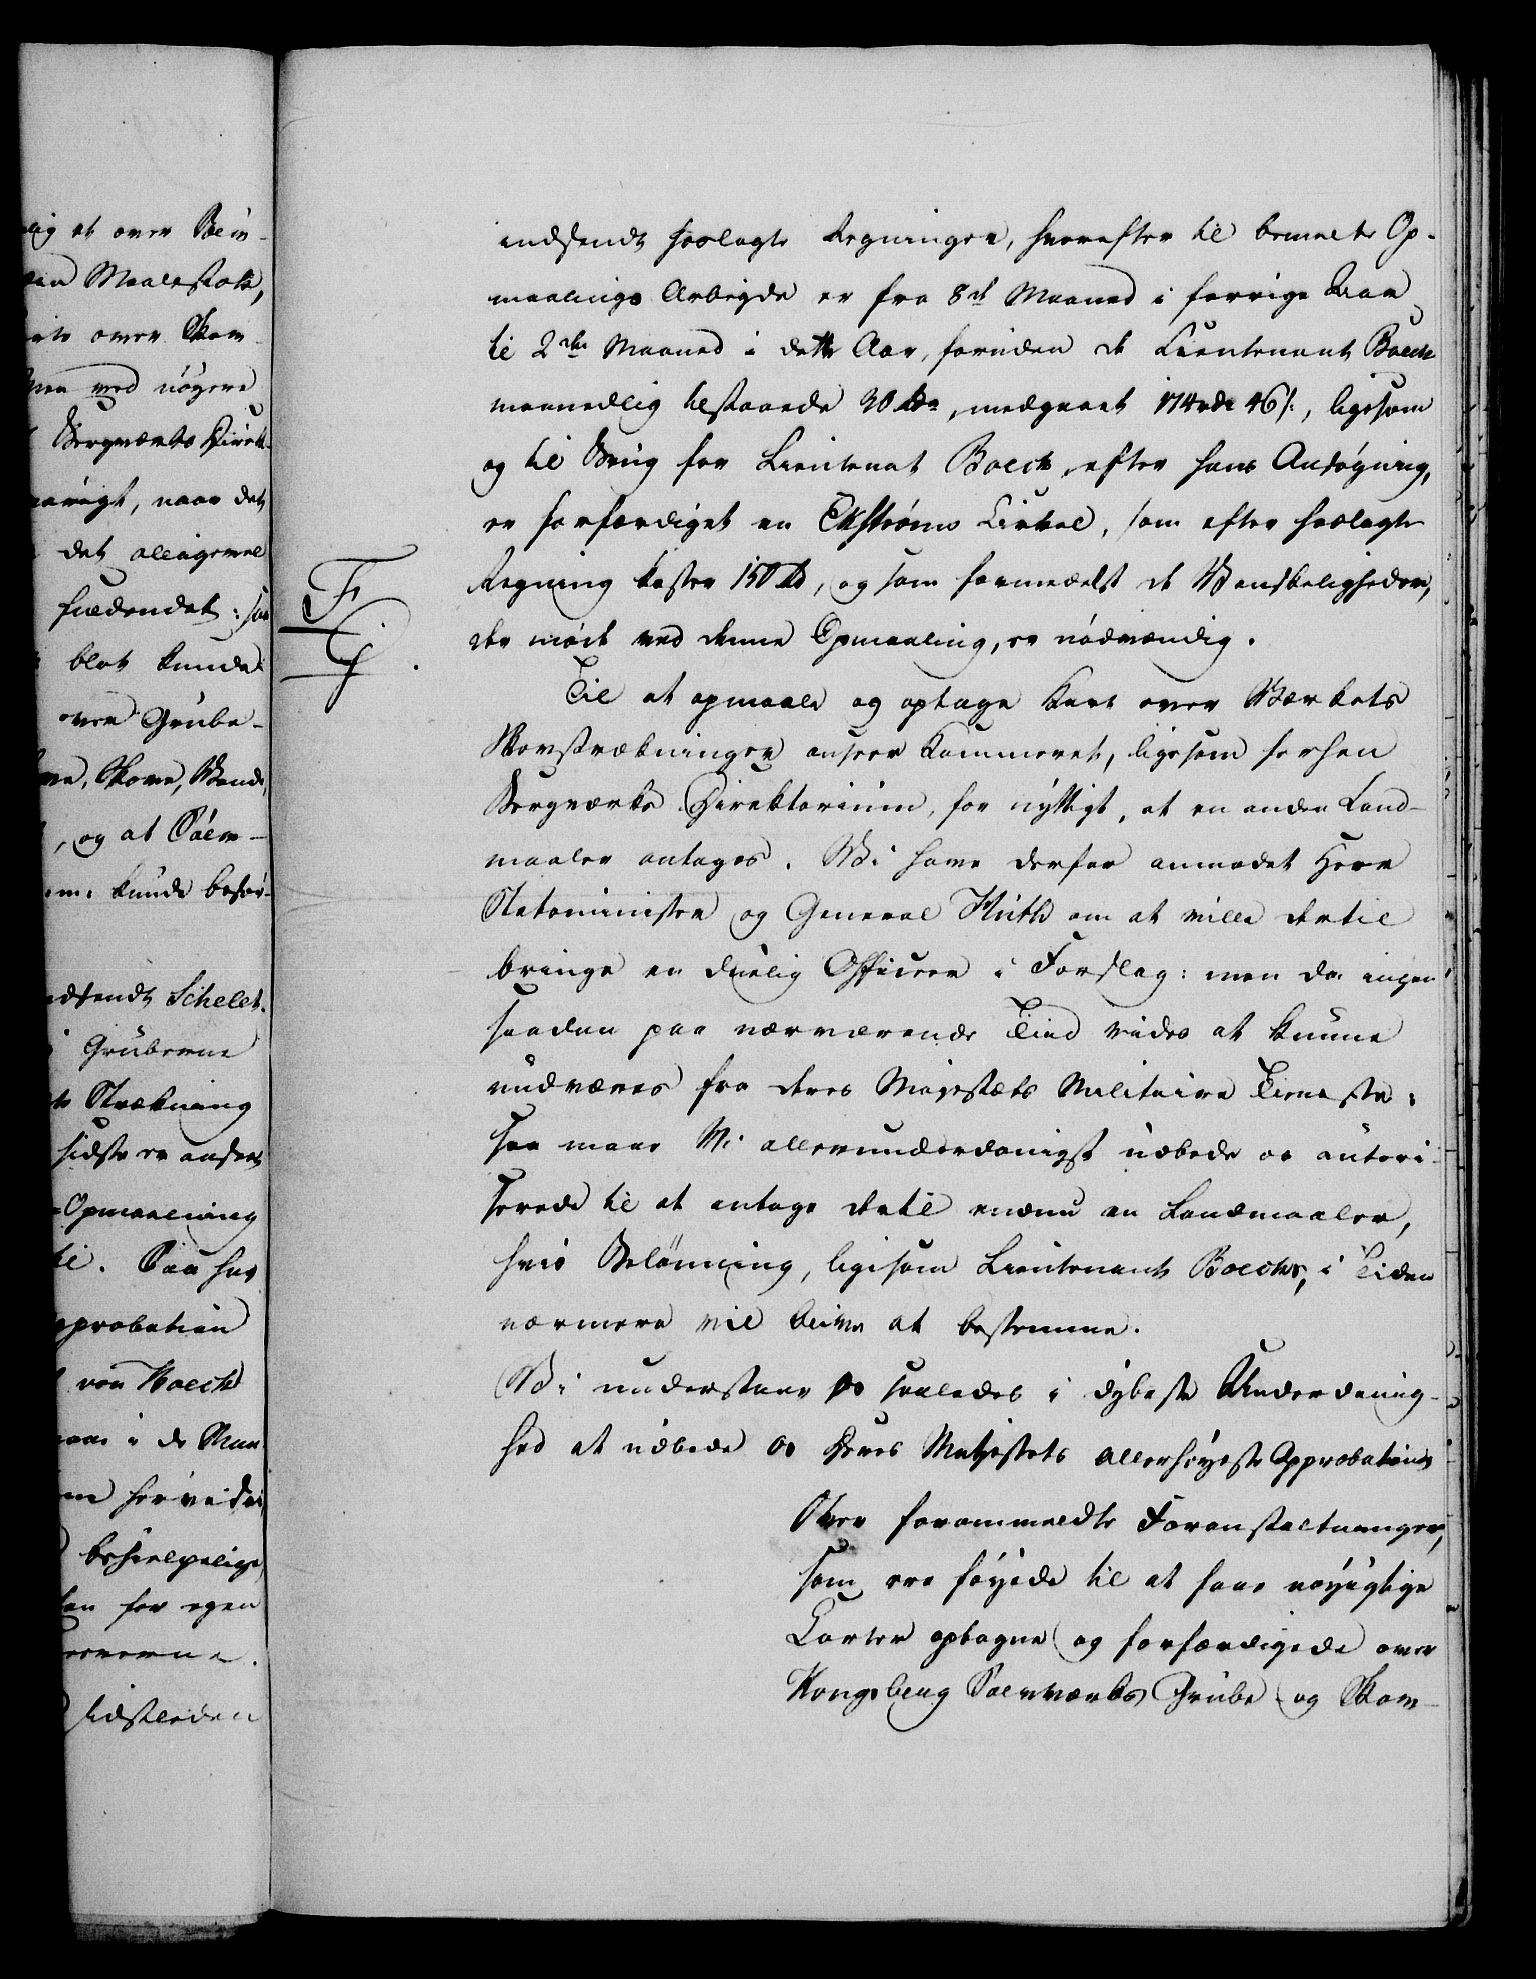 lig at over Sølv-
Maalestok,
over Skov
med nøyere
Bergværks Direkt-
, naar det
det alligevel
fuldendet: saa
blot kunde
over Grube-
Skove, Vande,
, og at Sølv-
kunde befor-
indsendt Schelet.
Gruberne
Strækning
sidste er anseet
Opmaaling
til. Paa hos
Approbation
von Boeck
i de Maa-
behielpelige
for egen
sidstleden
indsendt hoslagte Regninger, hvorefter til bemelte Op-
maalings Arbeyde er fra 8de Maaned i forrige Aar
til 2den Maaned i dette Aar, foruden de Lieutenant Boeck
maanedlig tilstaaede 30 rdr, medgaaet 174 rdr 46 s:, ligesom
og til Brug for Lieutenat Boeck, efter hans Ansøgning,
er forfærdiget en Ekstrøms Cirkel, som efter hoslagte
Regning koster 150 rd, og som formedelst de Vanskeligheder,
der møde ved denne Opmaaling, er nødvendig.
F
G.
Til at opmaale og optage Kart over Værkets
Skovstrækninger anseer Kammeret, ligesom forhen
Bergværks Direktorium, for nyttigt, at en anden Land-
maaler antages. Vi have derfor anmodet Herr
Statsminister og General Huth om at ville dertil
bringe en duelig Officeer i Forslag: men da ingen
saadan paa nærværende Tiid vides at kunne
undværes fra Deres Majestæts Militaire Tieneste:
saa maae Vi allerunderdanigst udbede os autori-
serede til at antage dertil endnu en Landmaaler,
hvis Belönning, ligesom Lieutenant Boecks, i Tiden
nærmere vil blive at bestemme.
Vi understaae os saaledes i dybeste Underdanig-
hed at udbede os Deres Majestets allerhøyeste Approbation
Over forommeldte Foranstaltninger,
som ere føyede til at faae nøyigtige
Carter optagne og forfærdigede over
Kongsberg Sølvværks Grube- og Skov-